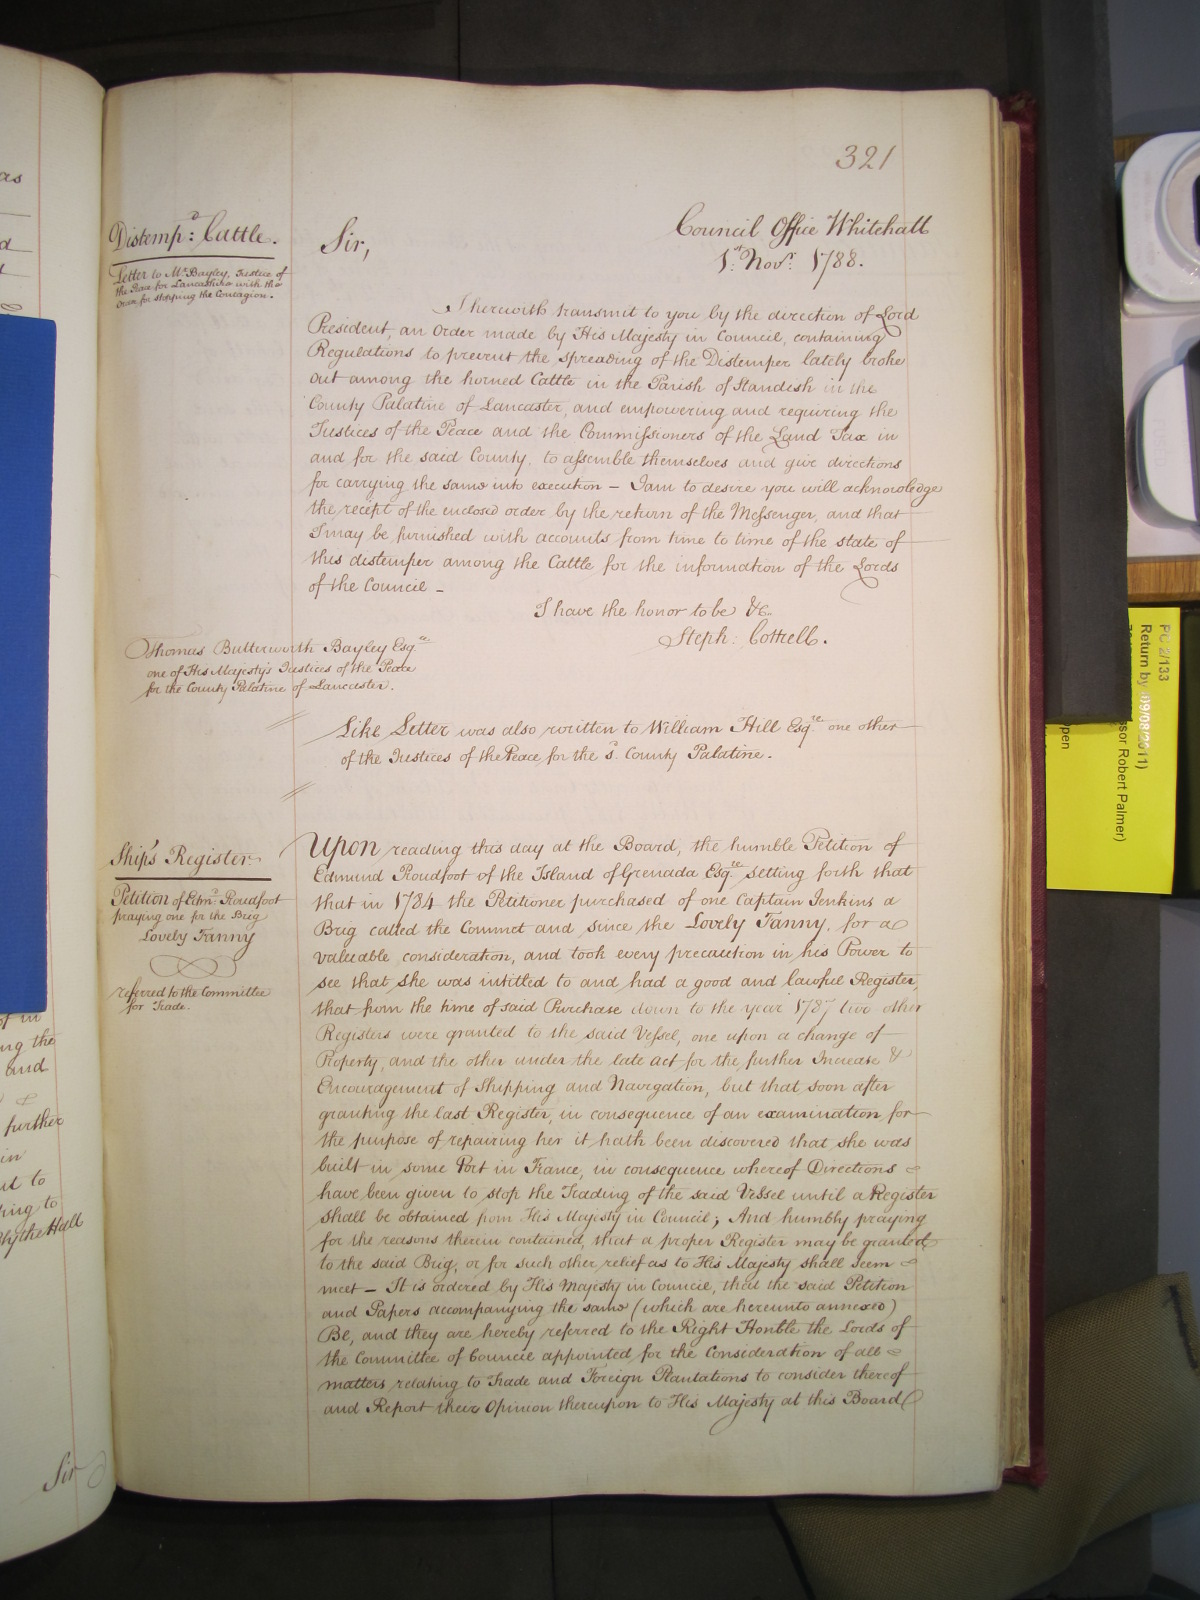 321
Distemp:d Cattle.
Letter to Mr. Bayley, Justice of
the Peace for Lancashire with the
Order for stopping the Contagion.
Sir,
Council Office Whitehall
1st. Novr. 1788.
I herewith transmit to you by the direction of Lord
President, an Order made by His Majesty in Council, containing
Regulations to prevent the spreading of the Distemper lately broke
out among the horned Cattle in the Parish of Standish in the
County Palatine of Lancaster, and empowering and requiring the
Justices of the Peace and the Commissioners of the Land Tax in
and for the said County, to assemble themselves and give directions
for carrying the same into execution – I am to desire you will acknowledge
the receipt of the enclosed order by the return of the Messenger, and that
I may be furnished with accounts from time to time of the state of
this distemper among the Cattle for the information of the Lords
of the Council –
I have the honor to be &c.
Steph: Cottrell.
Thomas Butterworth Bayley Esqre
one of His Majesty's Justices of the Peace
for the County Palatine of Lancaster.
Like Letter was also written to William Hill Esqre one other
of the Justices of the Peace for the sd. County Palatine.
Ship's Register
Petition of Edmd. Proudfoot
praying one for the Brig
Lovely Fanny
referred to the Committee
for Trade.
Upon reading this day at the Board, the humble Petition of
Edmund Proudfoot of the Island of Grenada Esqre setting forth that
that in 1784 the Petitioner purchased of one Captain Jenkins a
Brig called the Commet and since the Lovely Fanny, for a
valuable consideration, and took every precaution in his Power to
see that she was intitled to and had a good and lawful Register,
that from the time of said Purchase down to the year 1787 two other
Registers were granted to the said Vessel, one upon a change of
Property, and the other under the late act for the further Increase &
Encouragement of Shipping and Navigation, but that soon after
granting the last Register, in consequence of an examination for
the purpose of repairing her it hath been discovered that she was
built in some Port in France, in consequence whereof Directions
have been given to stop the Trading of the said Vessel until a Register
shall be obtained from His Majesty in Council; And humbly praying
for the reasons therein contained, that a proper Register may be granted
to the said Brig, or for such other relief as to His Majesty shall seem
meet – It is ordered by His Majesty in Council, that the said Petition
and Papers accompanying the same (which are hereunto annexed)
Be, and they are hereby referred to the Right Honble the Lords of
the Committee of Council appointed for the Consideration of all
matters relating to Trade and Foreign Plantations to consider thereof
and Report their Opinion thereupon to His Majesty at this Board
as
of in
ng the
and
further
in
to
ing to
Blythe Hall
Sir
PC 2/133
Return by (09/08/2011)
ssor Robert Palmer)
pen